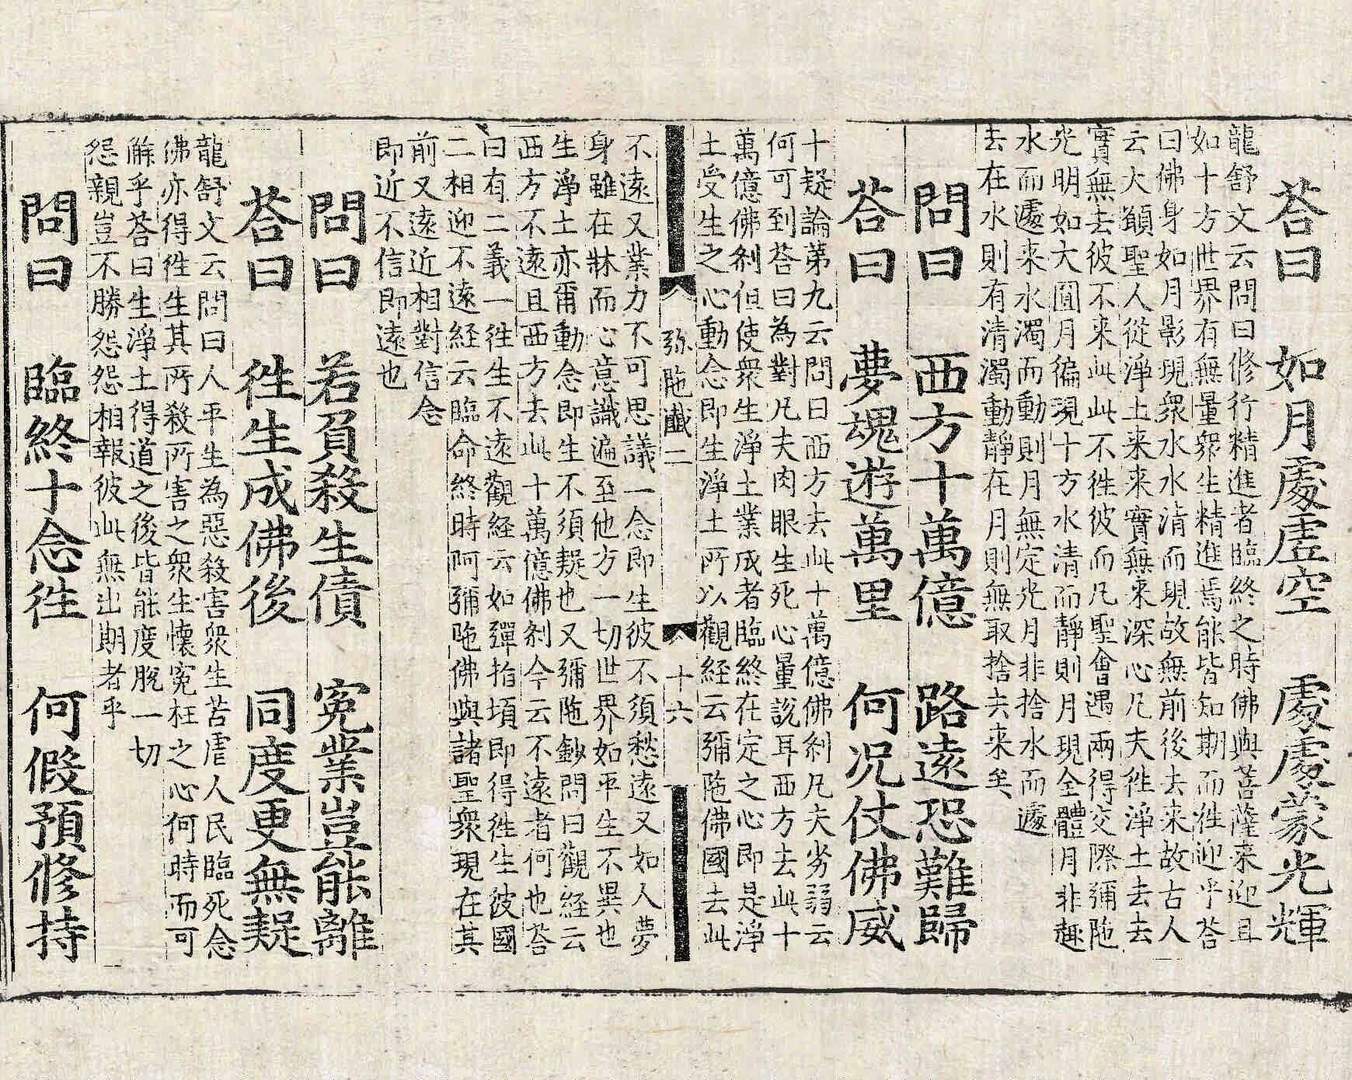 荅曰　如月處虛空　處處蒙光輝
龍舒文云問曰修行精進者臨終之時佛與菩薩來迎且
如十方世界有無量衆生精進焉能皆知期而徃迎乎荅
曰佛身如月影現衆水水清而現故無前後去來故古人
云大願聖人從淨土來來實無來深心凡夫徃淨土去去
實無去彼不來此此不徃彼而凡聖會遇兩得交際彌陁
光明如大圓月徧現十方水清而靜則月現全體月非趣
水而遽來水濁而動則月無定光月非捨水而遽
去在水則有清濁動靜在月則無取捨去來矣
問曰　西方十萬億　路遠恐難歸
荅曰　夢魂遊萬里　何況仗佛威
十疑論第九云問曰西方去此十萬億佛刹凡夫劣弱云
何可到荅曰為對凡夫肉眼生死心量說耳西方去此十
萬億佛刹但使衆生淨土業成者臨終在定之心即是淨
土受生之心動念即生淨土所以觀経云彌陁佛國去此
弥陁讖二　十六
不遠又業力不可思議一念即生彼不須愁遠又如人夢
身雖在牀而心意識遍至他方一切世界如平生不異也
生淨土亦爾動念即生不須疑也又彌陁鈔問曰觀経云
西方不遠且西方去此十萬億佛刹今云不遠者何也荅
曰有二義一徃生不遠觀経云如彈指頃即得徃生彼國
二相迎不遠経云臨命終時阿彌陁佛與諸聖衆現在其
前又遠近相對信念
即近不信即遠也
問曰　若負殺生債　寃業豈能離
荅曰　徃生成佛後　同度更無疑
龍舒文云問曰人平生為惡殺害衆生苦虐人民臨死念
佛亦得徃生其所殺所害之衆生懷寃枉之心何時而可
解乎荅曰生淨土得道之後皆能度脫一切
怨親豈不勝怨怨相報彼此無出期者乎
問曰　臨終十念徃　何假預修持